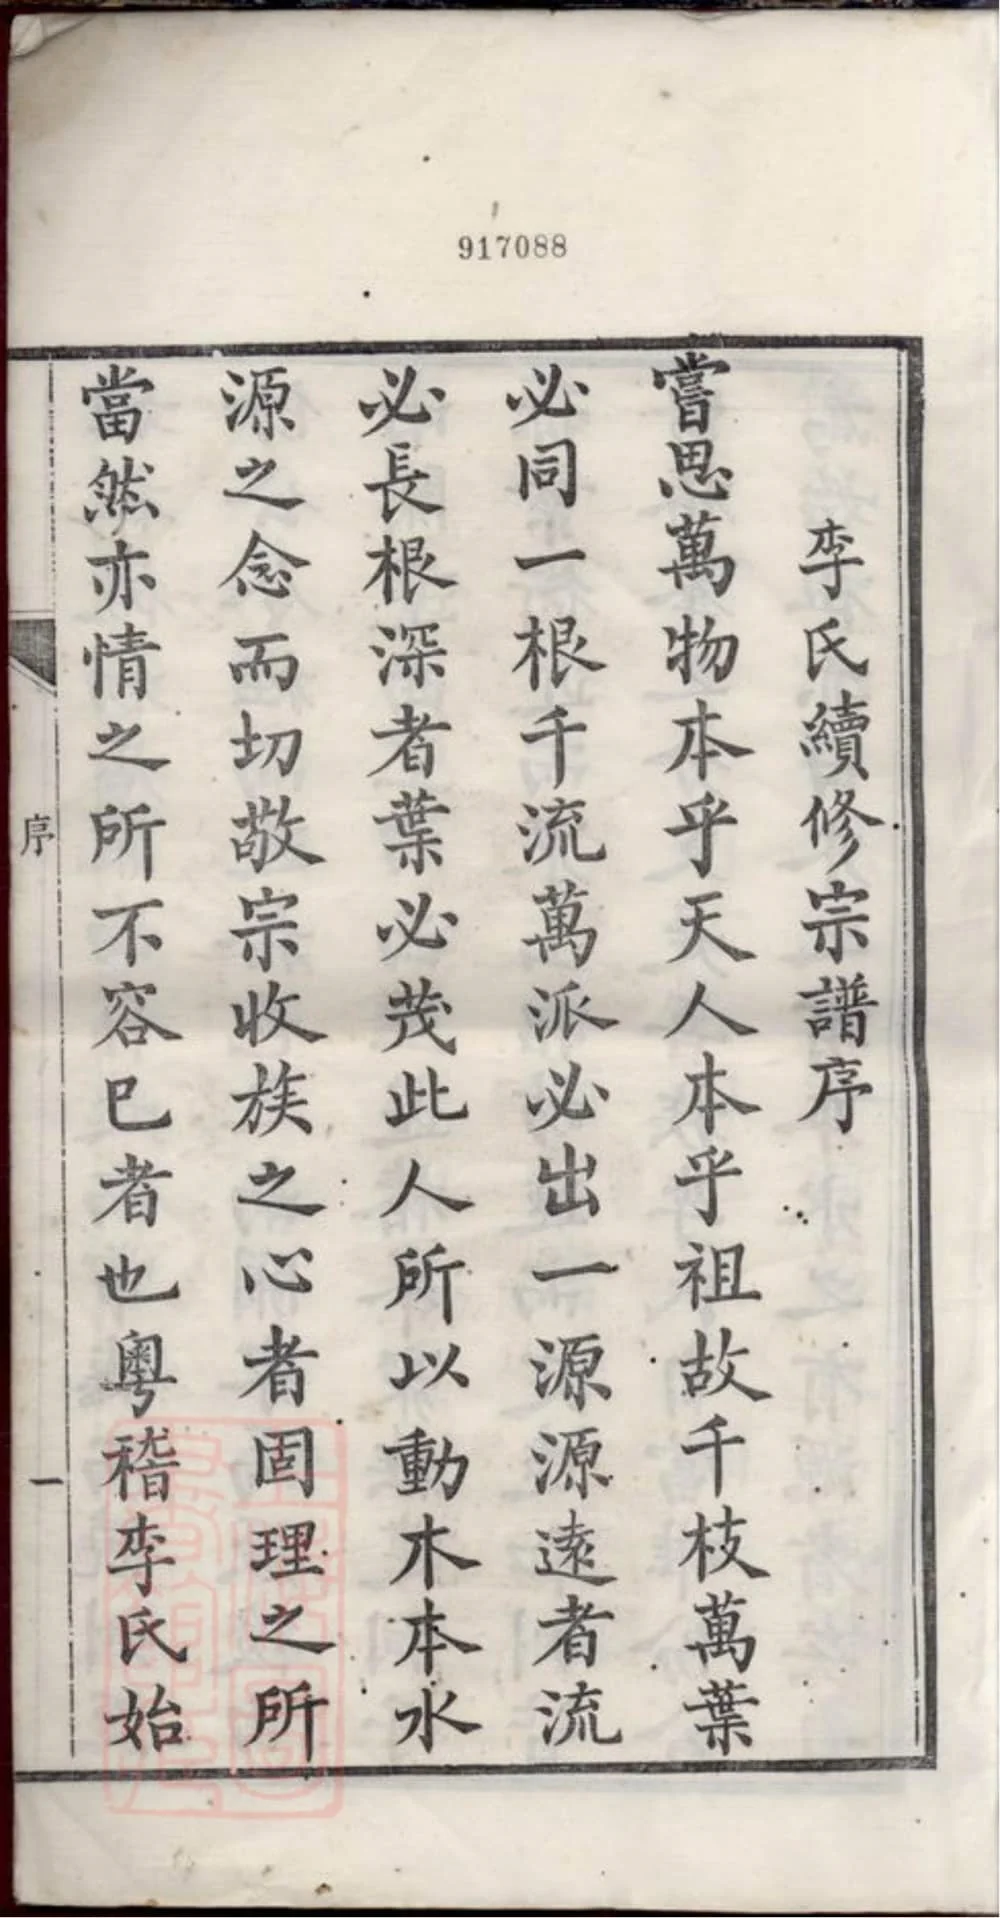 917088
李氏續修宗譜序
嘗思萬物本乎天人本乎祖故千枝萬葉
必同一根千流萬派必出一源源遠者流
必長根深者葉必茂此人所以動木本水
源之念而切敬宗收族之心者固理之所
當然亦情之所不容已者也粵稽李氏始
序
一